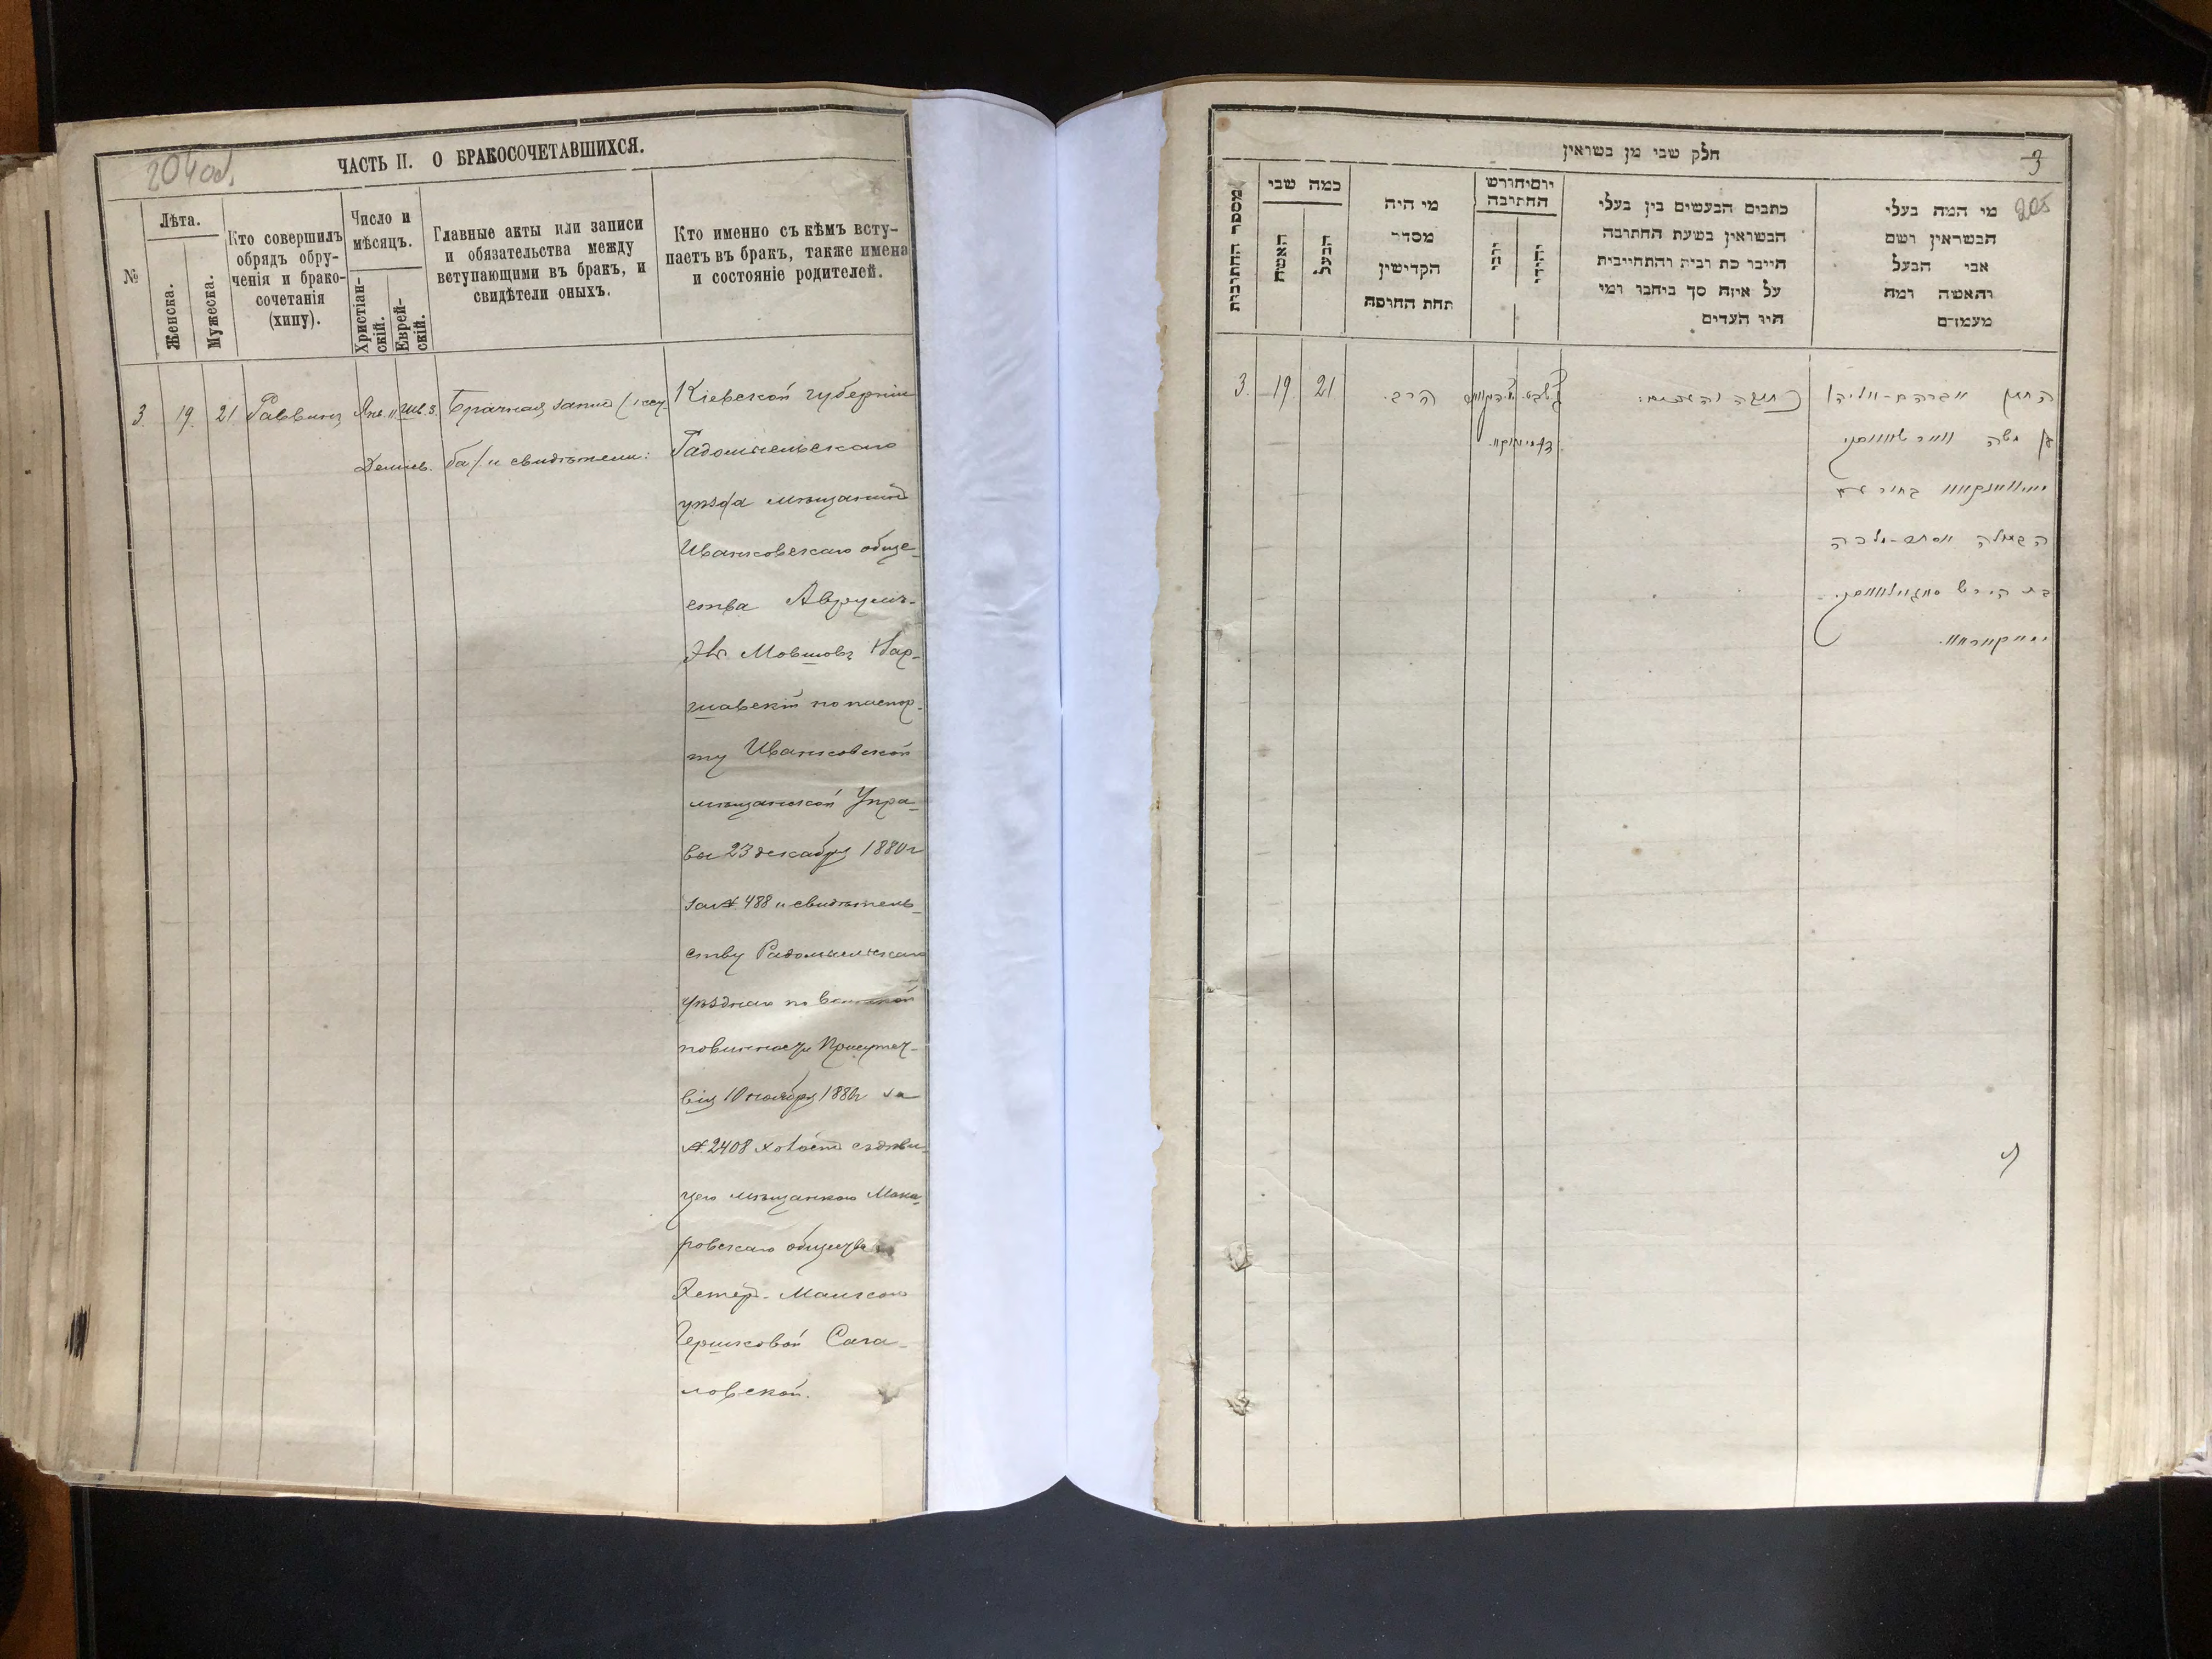 204 об.
ЧАСТЬ II. О БРАКОСОЧЕТАВШИХСЯ.
№
Лѣта.
Женска.
Мужеска.
Кто совершилъ
обрядъ обру-
ченія и брако-
сочетанія
(хипу).
Число и
мѣсяцъ.
Христіан-
скій.
Еврей-
скій.
Главные акты или записи
и обязательства между
вступающими въ бракъ, и
свидѣтели оныхъ.
Кто именно съ кѣмъ всту-
паетъ въ бракъ, также имена
и состояніе родителей.
3 19. 21 Раввинъ Янв. Шв. Брачная запись (ксу-
ба) и свидѣтели:
Кіевской губерніи
Радомысльскаго
уѣзда мѣщанинъ
Иванковскаго обще-
ства Аврумъ-
Эль Мовшовъ Вар-
шавскій по паспор-
ту Иванковской
мѣщанской Упра-
вы 23 декабря 1880 г
за № 488 и свидѣтель-
ству Радомысльскаго
уѣзднаго по воинской
повинности Присутст-
вія 10 ноября 1880г за
№ 2408 холостъ съ дѣви-
цею мѣщанкою Мака-
ровскаго общества
Эстеръ-Малкою
Гершковой Сага-
ловской.
חלק שני מן בשואין
3
205
מספר החתונות
כמה שני
האשה
הבעל
מי היה
מסדר
הקדישין
תחת החופה
יום יחודש
החתונה
יהודי
כתבים הנעשים בין בעלי
הנשואין בשעת החתונה
חייבו כת וביה והתחייבות
על איזה סך ביחבו ומי
היו העדים
מי המה בעלי
הנשואין ושם
אבי הבעל
והאשה ומה
מעמדם
3. 19. 21 הרב.
החתן אברהם-אליהו
בן משה ווארשאווסקי
הבתולה אסתר-מלכה
בת הירש סאגאלאווסקי